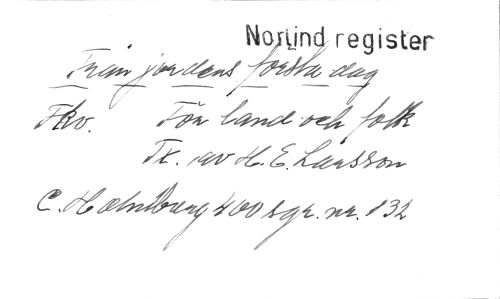 Norlind register
Från jordens första dag
Fkv. För land och folk
Tx. av H. E. Larsson
C. Holmberg 400 sgr. nr. 132